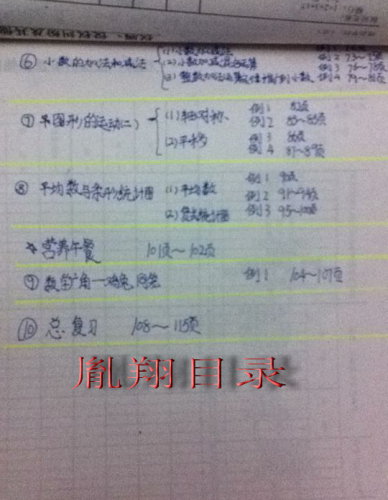 ⑥ 小数的加法和减法 (1)小数加减法 例1
(2)小数加减混合运算
(3)整数加法运算定律推广到小数 例4 79~
⑦ 图形的运动(二) (1)轴对称 例1 82页
例2 83~85页
(2)平移 例3 86页
例4 87~89页
⑧ 平均数与条形统计图 (1)平均数 例1 90页
例2 91~94页
(2)复式统计图 例3 95~100页
☆营养午餐 101页~102页
⑨ 数学广角—鸡兔同笼 例1 104~107页
⑩ 总复习 108~115页
胤翔目录